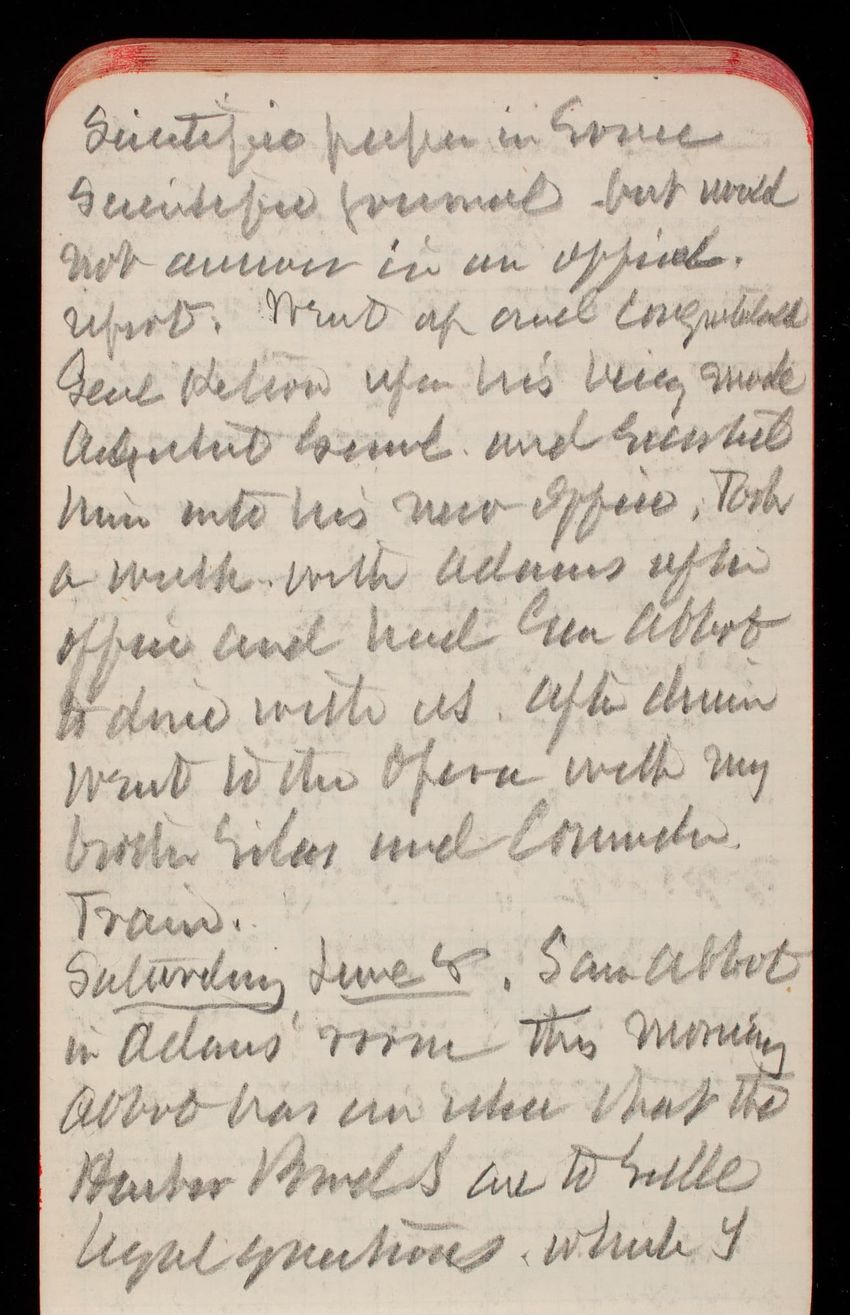 Scientific paper in Some
Scientific Journal but would
not answer in an official
report. Went up and Congratulated
Genl Kelton upon his being made
Adjutant Genl. and Escorted
him into his new office. Took
a walk with Adams after
office and had Genl Abbot
to dine with us. After dinner
went to the Opera with my
brother Silas and Comander
Train.
Saturday June 8. Saw Abbot
in Adams' room this morning
Abbot has an idea that the
Harbor Boards are to Settle
legal questions. which I